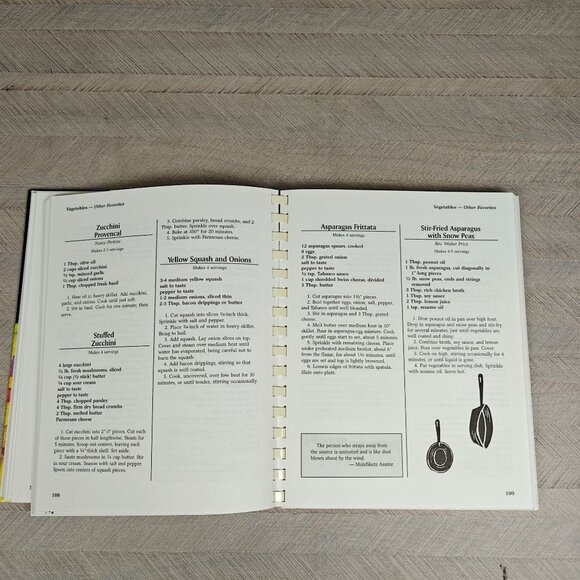 Vegetables — Other Favorites
Zucchini
Provencal
Nancy Perkins
Makes 2-3 servings
1 Tbsp. olive oil
2 cups sliced zucchini
½ tsp. minced garlic
½ cup sliced onions
1 Tbsp. chopped fresh basil
1. Heat oil in heavy skillet. Add zucchini,
garlic, and onions. Cook until just soft.
2. Stir in basil. Cook for one minute; then
serve.
Stuffed
Zucchini
Makes 8 servings
4 large zucchini
½ lb. fresh mushrooms, sliced
¼ cup (½ stick) butter
¼ cup sour cream
salt to taste
pepper to taste
4 Tbsp. chopped parsley
4 Tbsp. firm dry bread crumbs
2 Tbsp. melted butter
Parmesan cheese
1. Cut zucchini into 2"-3" pieces. Cut each
of those pieces in half lengthwise. Steam for
5 minutes. Scoop out centers, leaving each
piece with a ¼"-thick shell. Set aside.
2. Saute mushrooms in ¼ cup butter. Stir
in sour cream. Season with salt and pepper.
Spoon into centers of squash pieces.
3. Combine parsley, bread crumbs, and 2
Tbsp. butter. Sprinkle over squash.
4. Bake at 350° for 20 minutes.
5. Sprinkle with Parmesan cheese.
Yellow Squash and Onions
Makes 4 servings
3-4 medium yellow squash
salt to taste
pepper to taste
1-2 medium onions, sliced thin
2-3 Tbsp. bacon drippings or butter
1. Cut squash into slices ¼-inch thick.
Sprinkle with salt and pepper.
2. Place ¼-inch of water in heavy skillet.
Bring to boil.
3. Add squash. Lay onion slices on top.
Cover and steam over medium heat until
water has evaporated, being careful not to
burn the squash.
4. Add bacon drippings, stirring so that
squash is well coated.
5. Cook, uncovered, over low heat for 30
minutes, or until tender, stirring occasionally.
108
Vegetables — Other Favorites
Asparagus Frittata
Makes 4 servings
12 asparagus spears, cooked
8 eggs
2 Tbsp. grated onion
salt to taste
pepper to taste
½ tsp. Tabasco sauce
1 cup shredded Swiss cheese, divided
3 Tbsp. butter
1. Cut asparagus into 1½" pieces.
2. Beat together eggs, onion, salt, pepper,
and Tabasco until well blended.
3. Stir in asparagus and 3 Tbsp. grated
cheese.
4. Melt butter over medium heat in 10"
skillet. Pour in asparagus-egg mixture. Cook
gently until eggs start to set, about 5 minutes.
5. Sprinkle with remaining cheese. Place
under preheated medium broiler, about 6"
from the flame, for about 1½ minutes, until
eggs are set and top is lightly browned.
6. Loosen edges of frittata with spatula.
Slide onto plate.
The person who strays away from
the source is unrooted and is like dust
blown about by the wind.
— Molefikete Asante
Stir-Fried Asparagus
with Snow Peas
Rec. Walter Price
Makes 4-5 servings
1 Tbsp. peanut oil
1 lb. fresh asparagus, cut diagonally in
1"-long pieces
½ lb. snow peas, ends and strings
removed
3 Tbsp. rich chicken broth
1 Tbsp. soy sauce
2 Tbsp. lemon juice
1 tsp. sesame oil
1. Heat peanut oil in pan over high heat.
Drop in asparagus and snow peas and stir-fry
for several minutes, just until vegetables are
well coated and about to soften.
2. Combine broth, soy sauce, and lemon
juice. Pour over vegetables in pan. Cover.
3. Cook on high, stirring occasionally for 4
minutes, or until liquid is gone.
4. Put vegetables in serving dish. Sprinkle
with sesame oil. Serve hot.
109